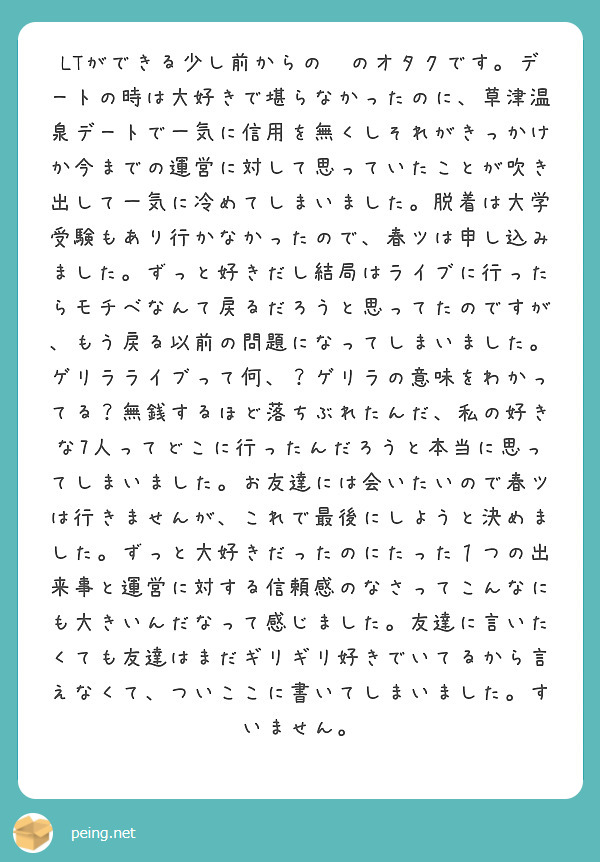 LTができる少し前からの　のオタクです。デ
ートの時は大好きで堪らなかったのに、草津温
泉デートで一気に信用を無くしそれがきっかけ
か今までの運営に対して思っていたことが吹き
出して一気に冷めてしまいました。脱着は大学
受験もあり行かなかったので、春ツは申し込み
ました。ずっと好きだし結局はライブに行った
らモチベなんて戻るだろうと思ってたのですが
、もう戻る以前の問題になってしまいました。
ゲリラライブって何、？ゲリラの意味をわかっ
てる？無銭するほど落ちぶれたんだ、私の好き
な7人ってどこに行ったんだろうと本当に思っ
てしまいました。お友達には会いたいので春ツ
は行きませんが、これで最後にしようと決めま
した。ずっと大好きだったのにたった1つの出
来事と運営に対する信頼感のなさってこんなに
も大きいんだなって感じました。友達に言いた
くても友達はまだギリギリ好きでいてるから言
えなくて、ついここに書いてしまいました。す
いません。
peing.net